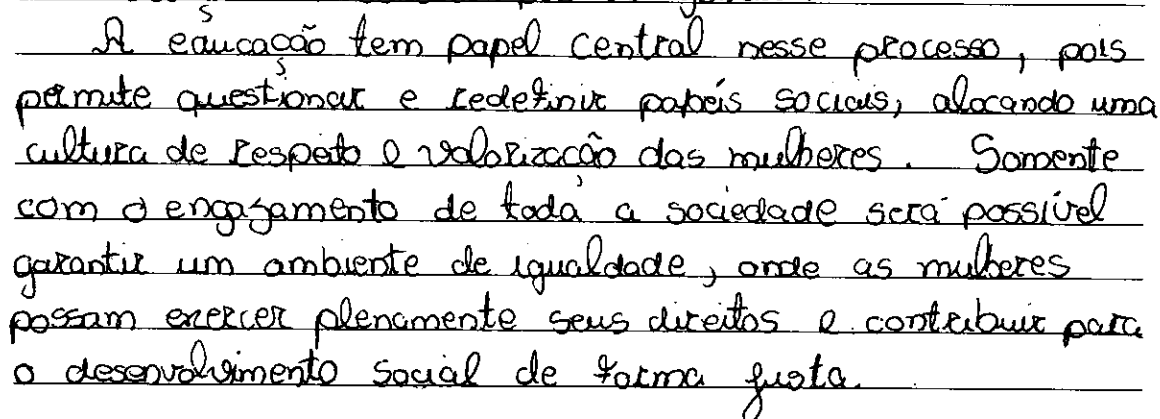 A educação tem papel central nesse processo, pois
permite questionar e redefinir papéis sociais, alocando uma
cultura de respeito e valorização das mulheres. Somente
com o engajamento de toda a sociedade será possível
garantir um ambiente de igualdade, onde as mulheres
possam exercer plenamente seus direitos e contribuir para
o desenvolvimento social de forma justa.